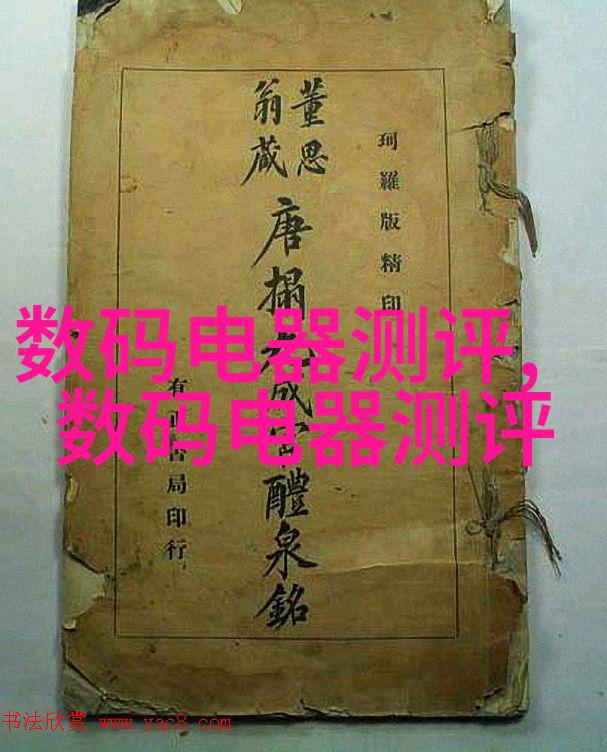 珂羅版精印
董思
翁藏
唐搨九成宮醴泉銘
有正書局印行
数码电器测评,
数码电器测评
书法欣赏 www.yac8.com